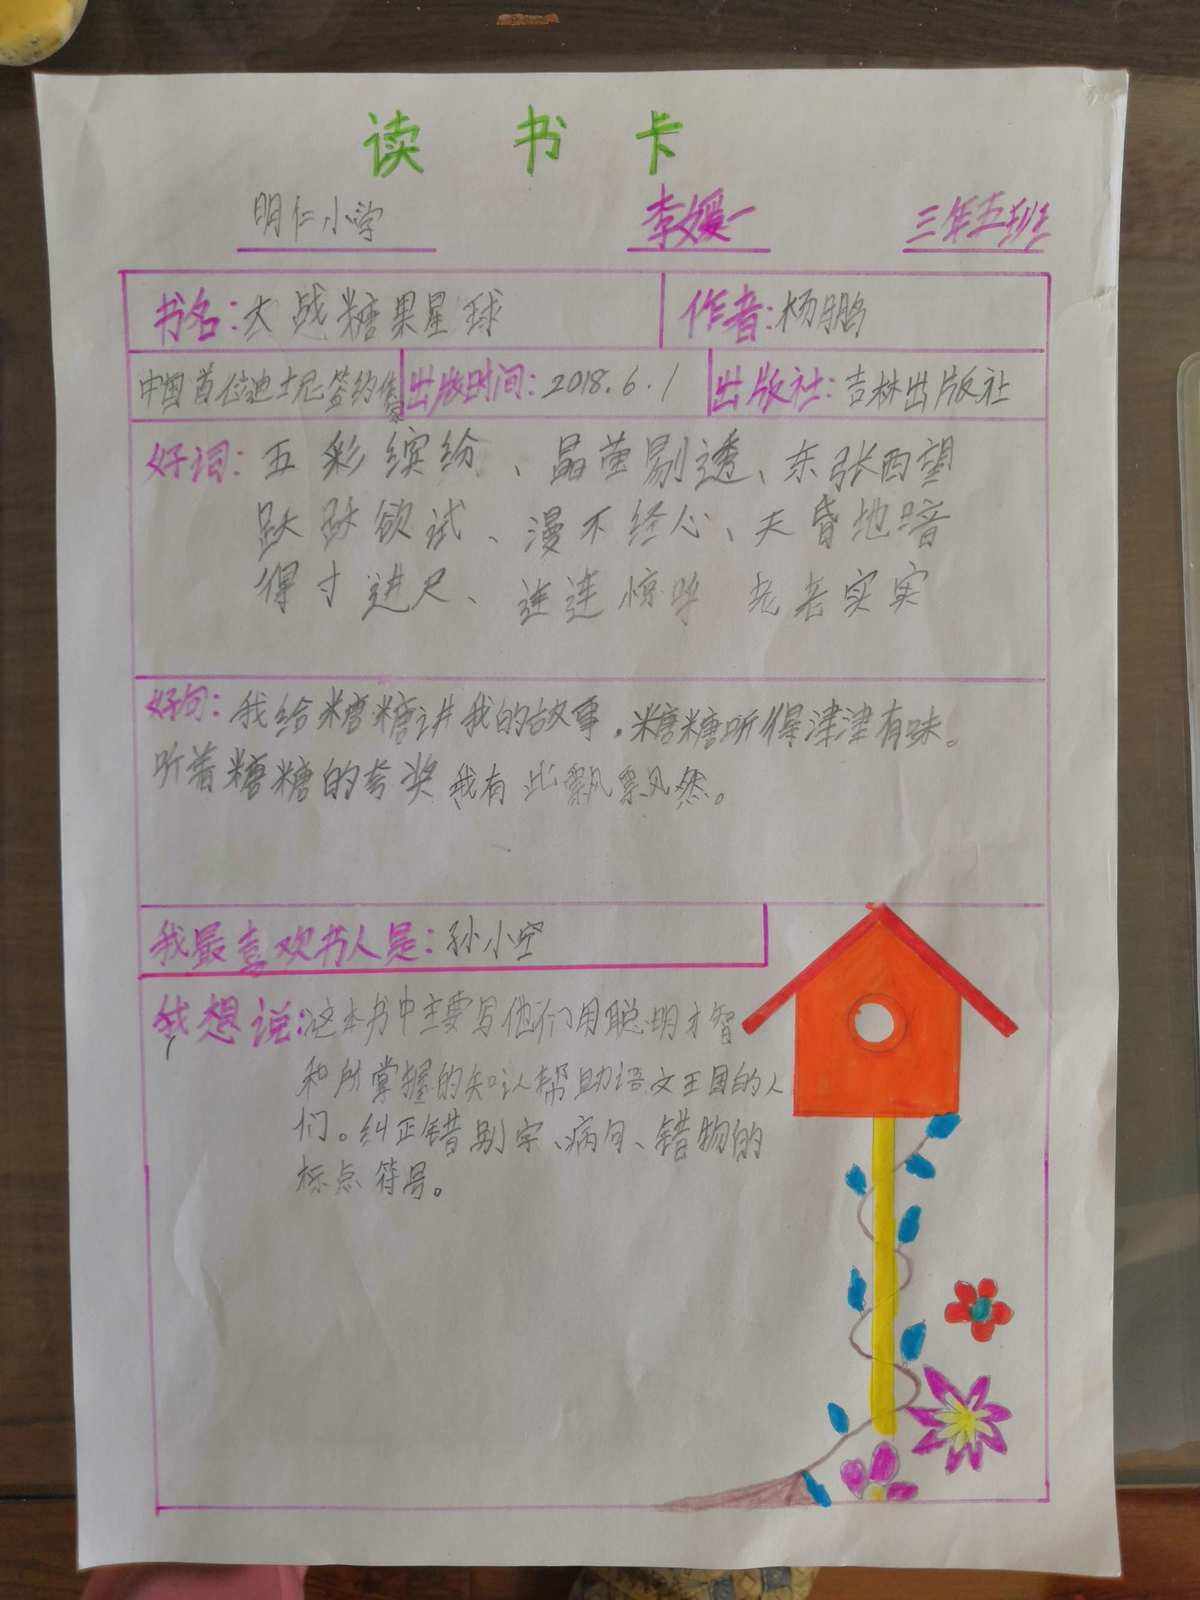 读书卡
明仁小学 李媛一 三年五班
书名:大战糖果星球 作者:杨鹏
中国首位迪士尼签约作家 出版时间:2018.6.1 出版社:吉林出版社
好词:五彩缤纷、晶莹剔透、东张西望
跃跃欲试、漫不经心、天昏地暗
得寸进尺、连连惊呼 老老实实
好句:我给糖糖讲我的故事,糖糖听得津津有味。
听着糖糖的夸奖我有些飘飘然。
我最喜欢书人是:孙小空
我想说:这本书中主要写他们用聪明才智
和所掌握的知识帮助语文王国的人
们。纠正错别字、病句、错物的
标点符号。